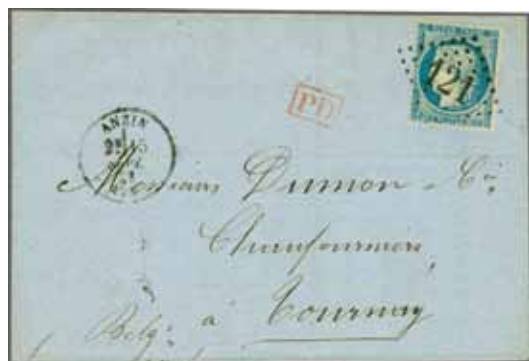 121
PD
ANZIN
Messieurs Dumon & Cie
Chaufourniers
à Tournay
Belg: